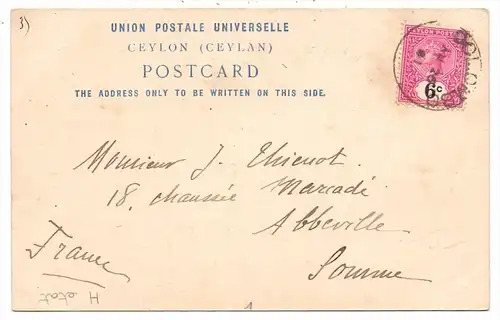 3)
UNION POSTALE UNIVERSELLE
CEYLON (CEYLAN)
POSTCARD
THE ADDRESS ONLY TO BE WRITTEN ON THIS SIDE.
CEYLON POST
6c
Monsieur J. Thienot
18, chaussée Marcadé
Abbeville
Somme
France